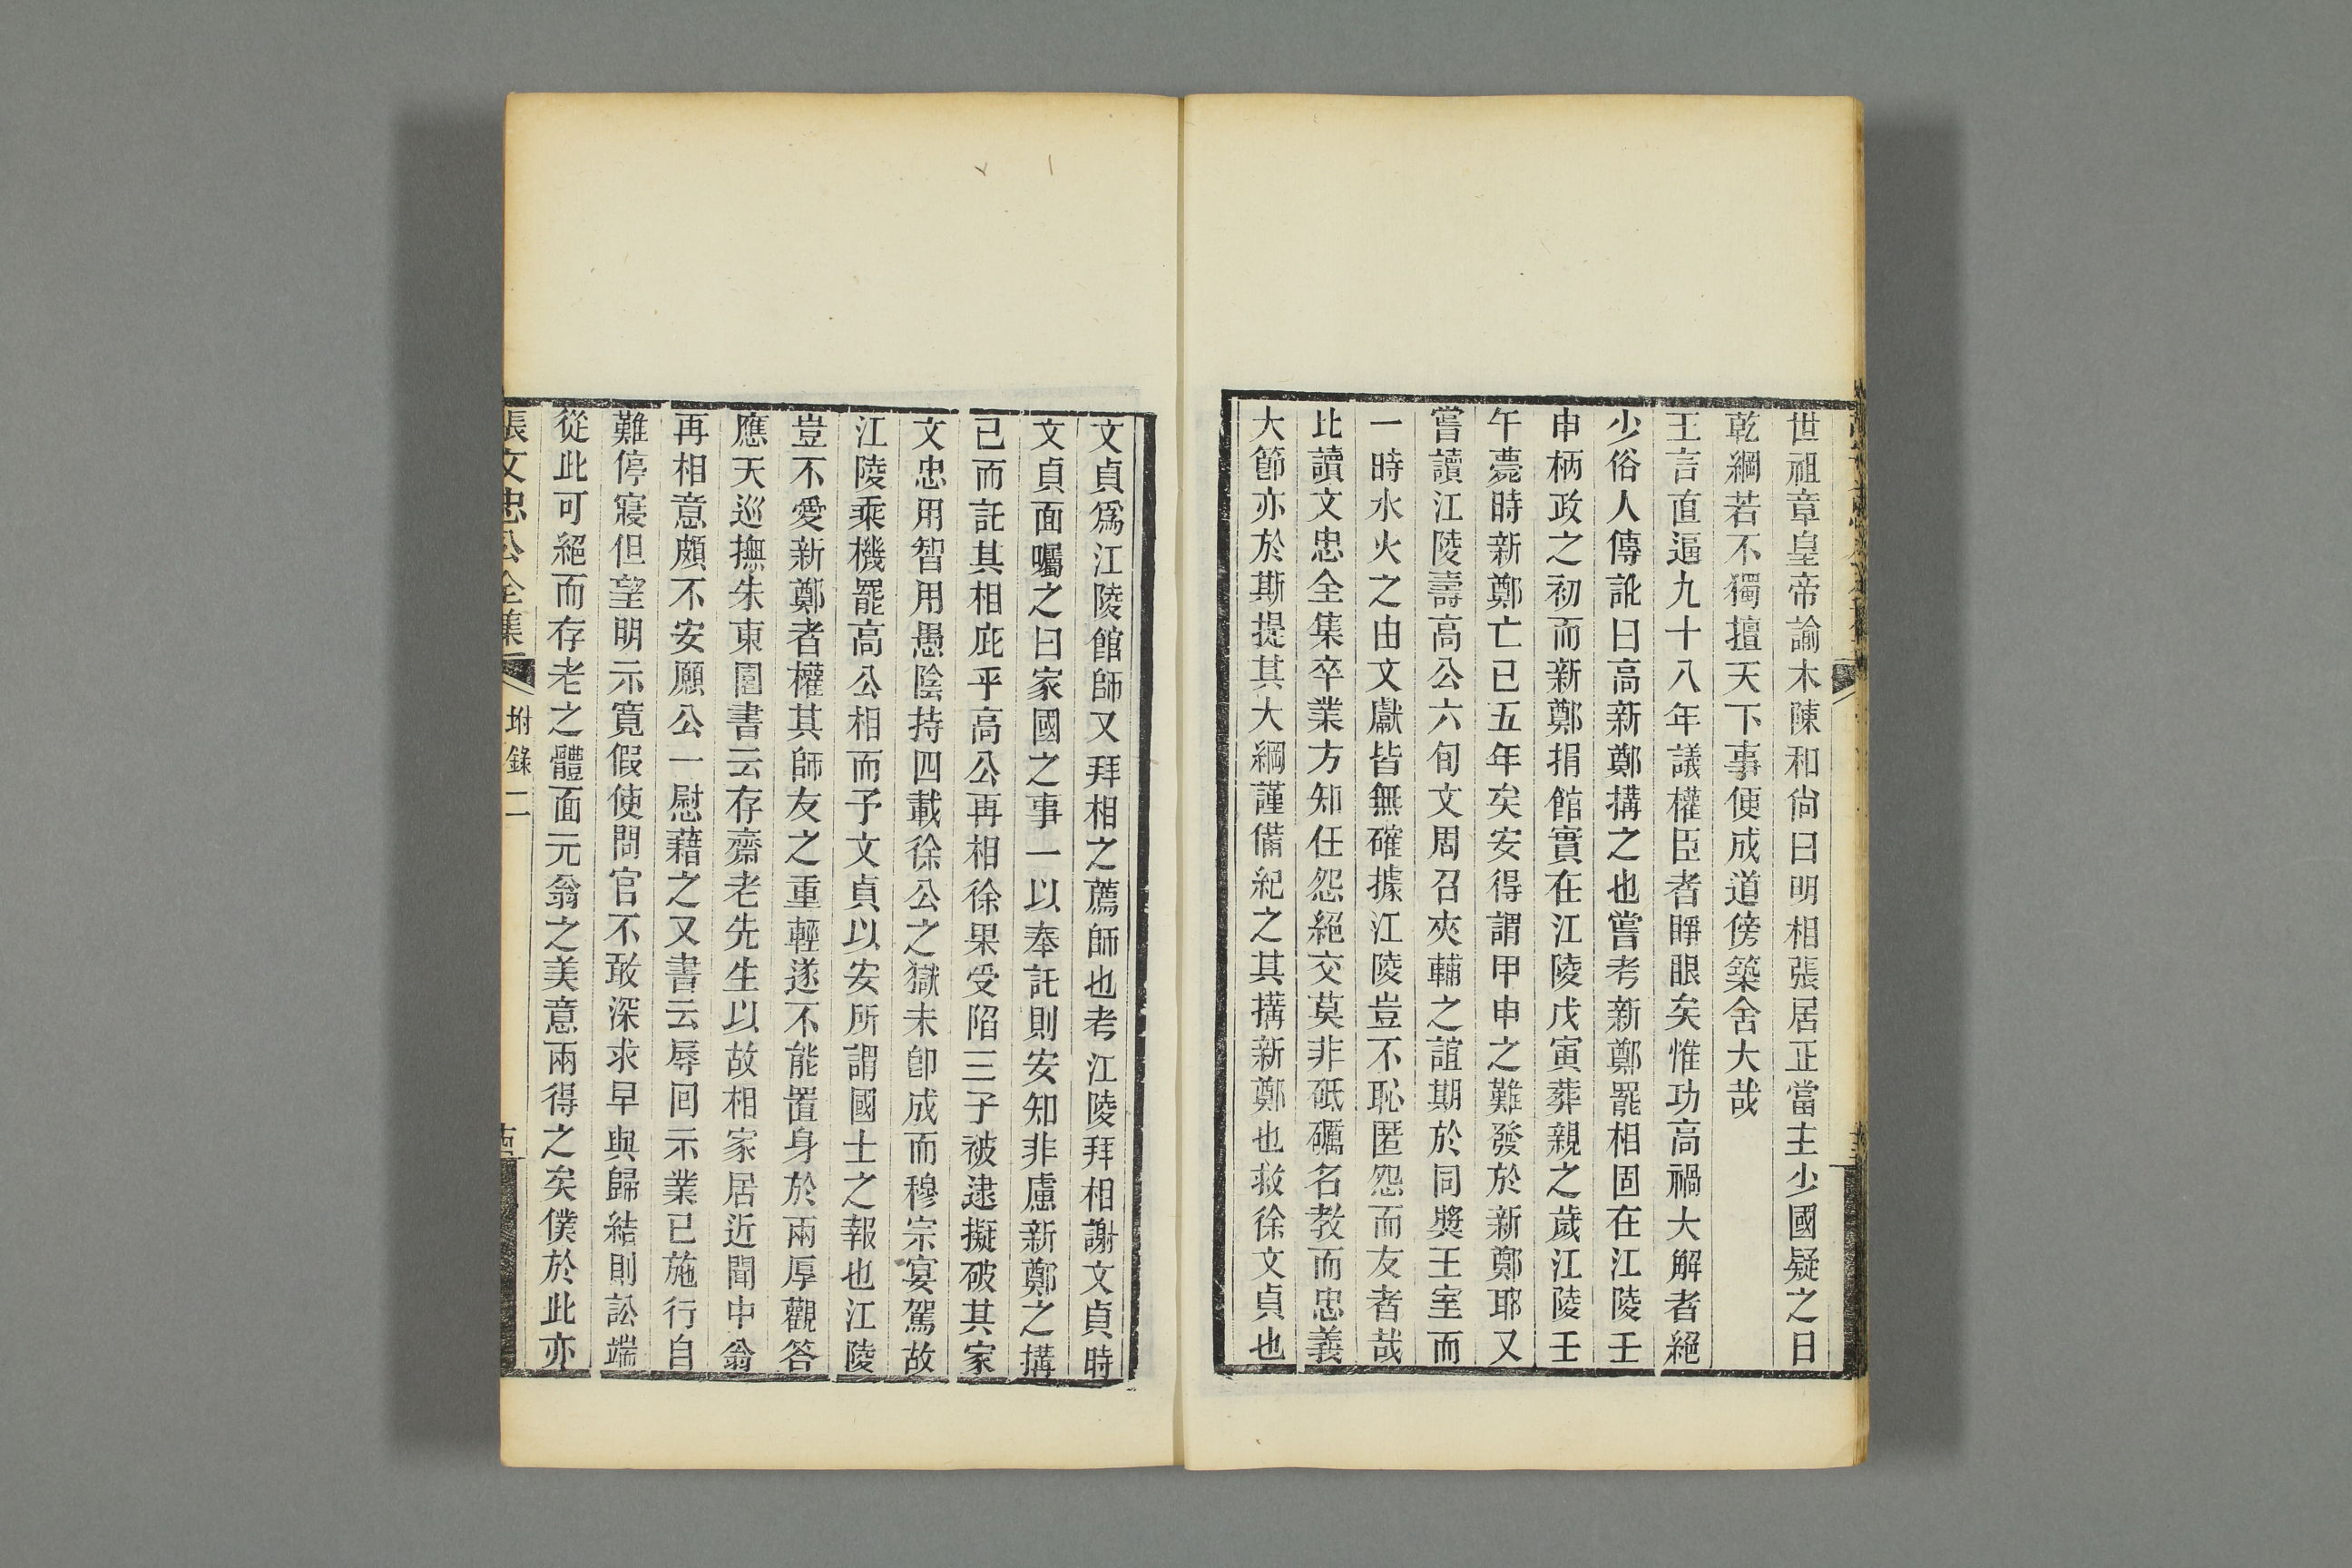 世祖章皇帝諭木陳和尙曰明相張居正當主少國疑之日
乾綱若不獨擅天下事便成道傍築舍大哉
王言直逼九十八年議權臣者睜眼矣惟功高禍大解者絕
少俗人傳訛曰高新鄭搆之也嘗考新鄭罷相固在江陵壬
申柄政之初而新鄭捐館實在江陵戊寅葬親之歲江陵壬
午薨時新鄭亡已五年矣安得謂甲申之難發於新鄭耶又
嘗讀江陵壽高公六旬文周召夾輔之誼期於同奬王室而
一時水火之由文獻皆無確據江陵豈不恥匿怨而友者哉
比讀文忠全集卒業方知任怨絕交莫非砥礪名教而忠義
大節亦於斯提其大綱謹備紀之其搆新鄭也救徐文貞也
文貞爲江陵館師又拜相之薦師也考江陵拜相謝文貞時
文貞面囑之曰家國之事一以奉託則安知非慮新鄭之搆
己而託其相庇乎高公再相徐果受陷三子被逮擬破其家
文忠用智用愚陰持四載徐公之獄未卽成而穆宗宴駕故
江陵乘機罷高公相而予文貞以安所謂國士之報也江陵
豈不愛新鄭者權其師友之重輕遂不能置身於兩厚觀答
應天巡撫朱東園書云存齋老先生以故相家居近聞中翁
再相意頗不安願公一慰藉之又書云辱回示業已施行自
難停寢但望明示寬假使問官不敢深求早與歸結則訟端
從此可絕而存老之體面元翁之美意兩得之矣僕於此亦
張文忠公全集 坿錄二